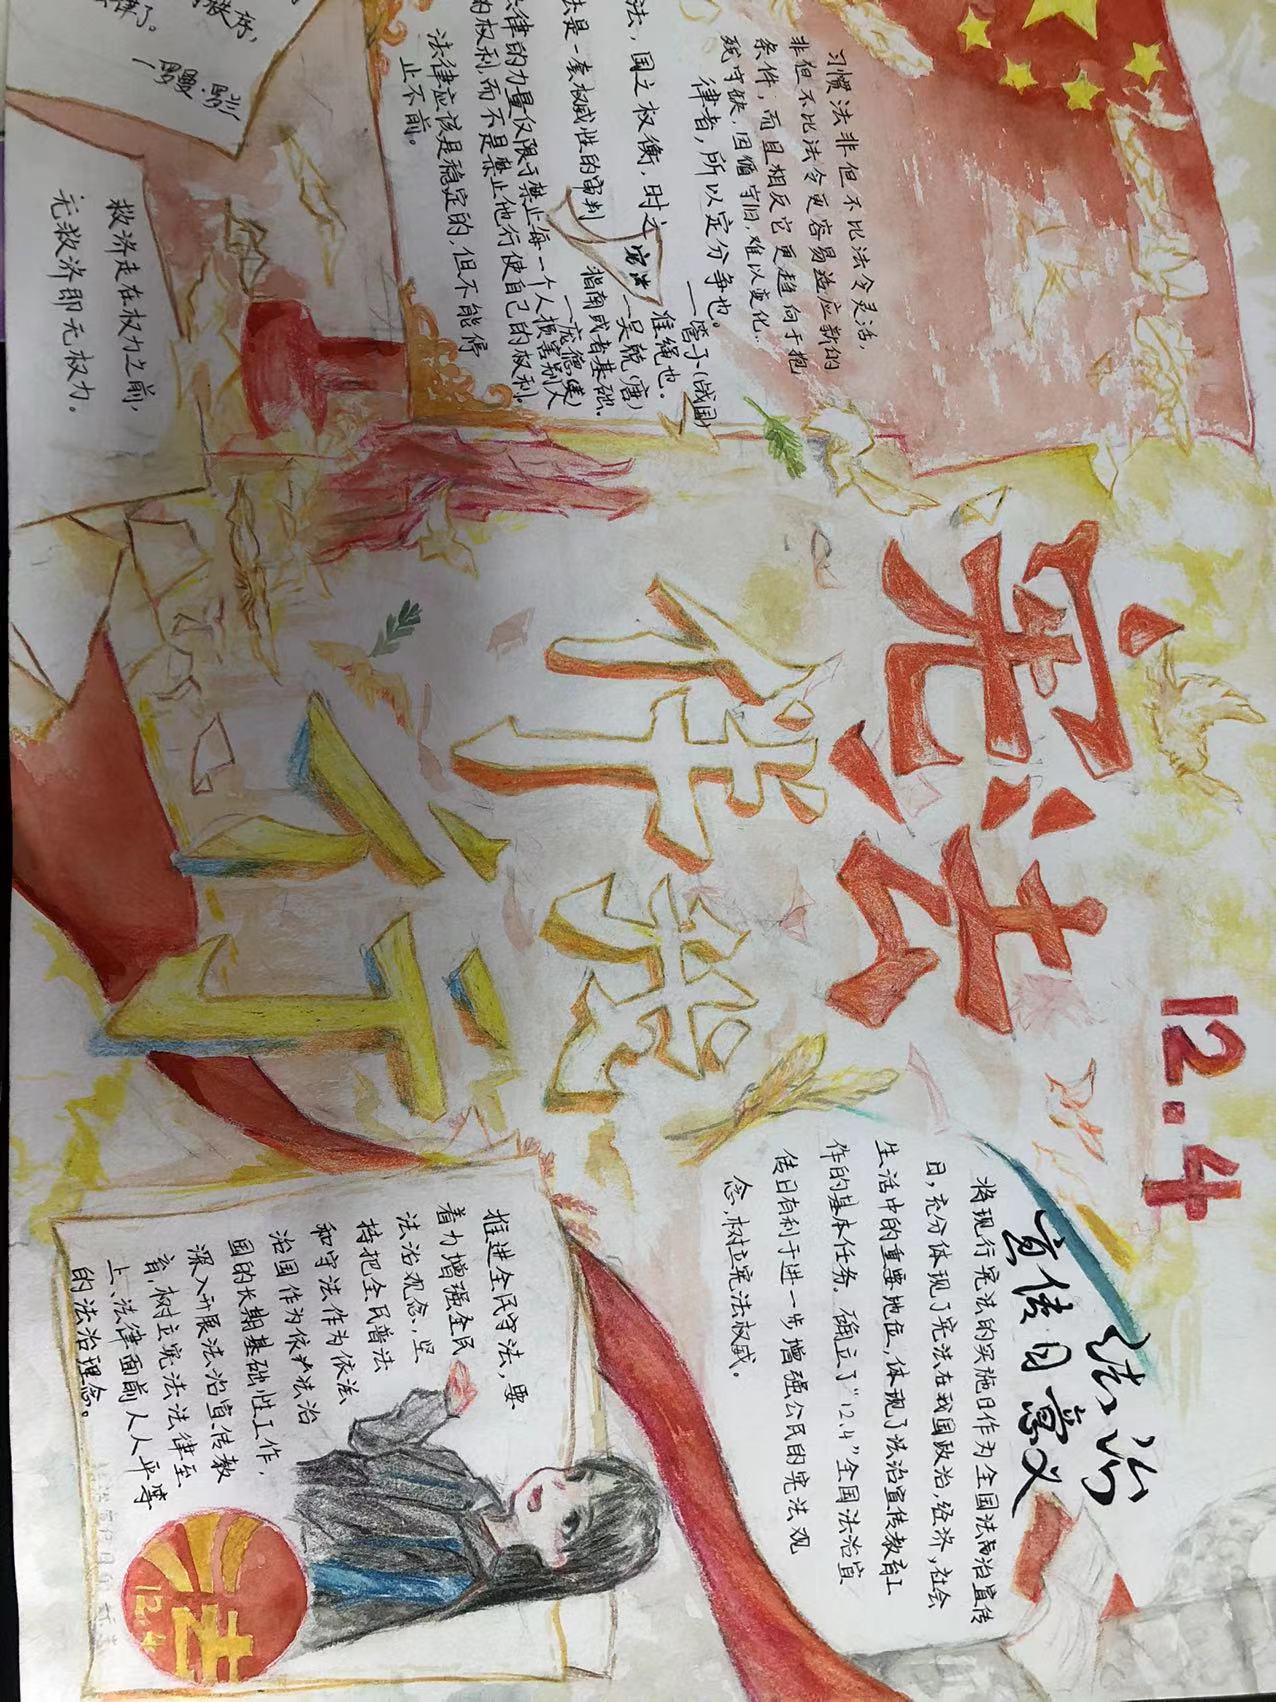 12.4
宪法
伴我
行
习惯法非但不比法令灵活，
非但不比法令更容易适应新的
条件，而且相反它更趋向于抱
残守缺、因循守旧，难以变化.
律者，所以定分争也。
——管子(战国)
法，国之权衡，时之准绳也。
——吴兢(唐)
法是一套权威性的审判指南或者基础.
——庞德(美)
律的力量仅限于禁止每一个人损害别人
的权利，而不是禁止他行使自己的权利.
法律应该是稳定的，但不能停
止不前。
宪法
秩序，
律了。
—罗曼·罗兰
救济走在权力之前，
无救济即无权力。
法治
宣传日意义
将现行宪法的实施日作为全国法制治宣传
日，充分体现了宪法在我国政治，经济，社会
生活中的重要地位，体现了法治宣传教育工
作的基本任务。确立了“12.4”全国法治宣
传日有利于进一步增强公民的宪法观
念，树立宪法权威。
推进全民守法，要
着力增强全民
法治观念，坚
持把全民普法
和守法作为依法
治国作为依法治
国的长期基础性工作，
深入开展法治宣传教
育，树立宪法法律至
上、法律面前人人平等
的法治理念。
12.4